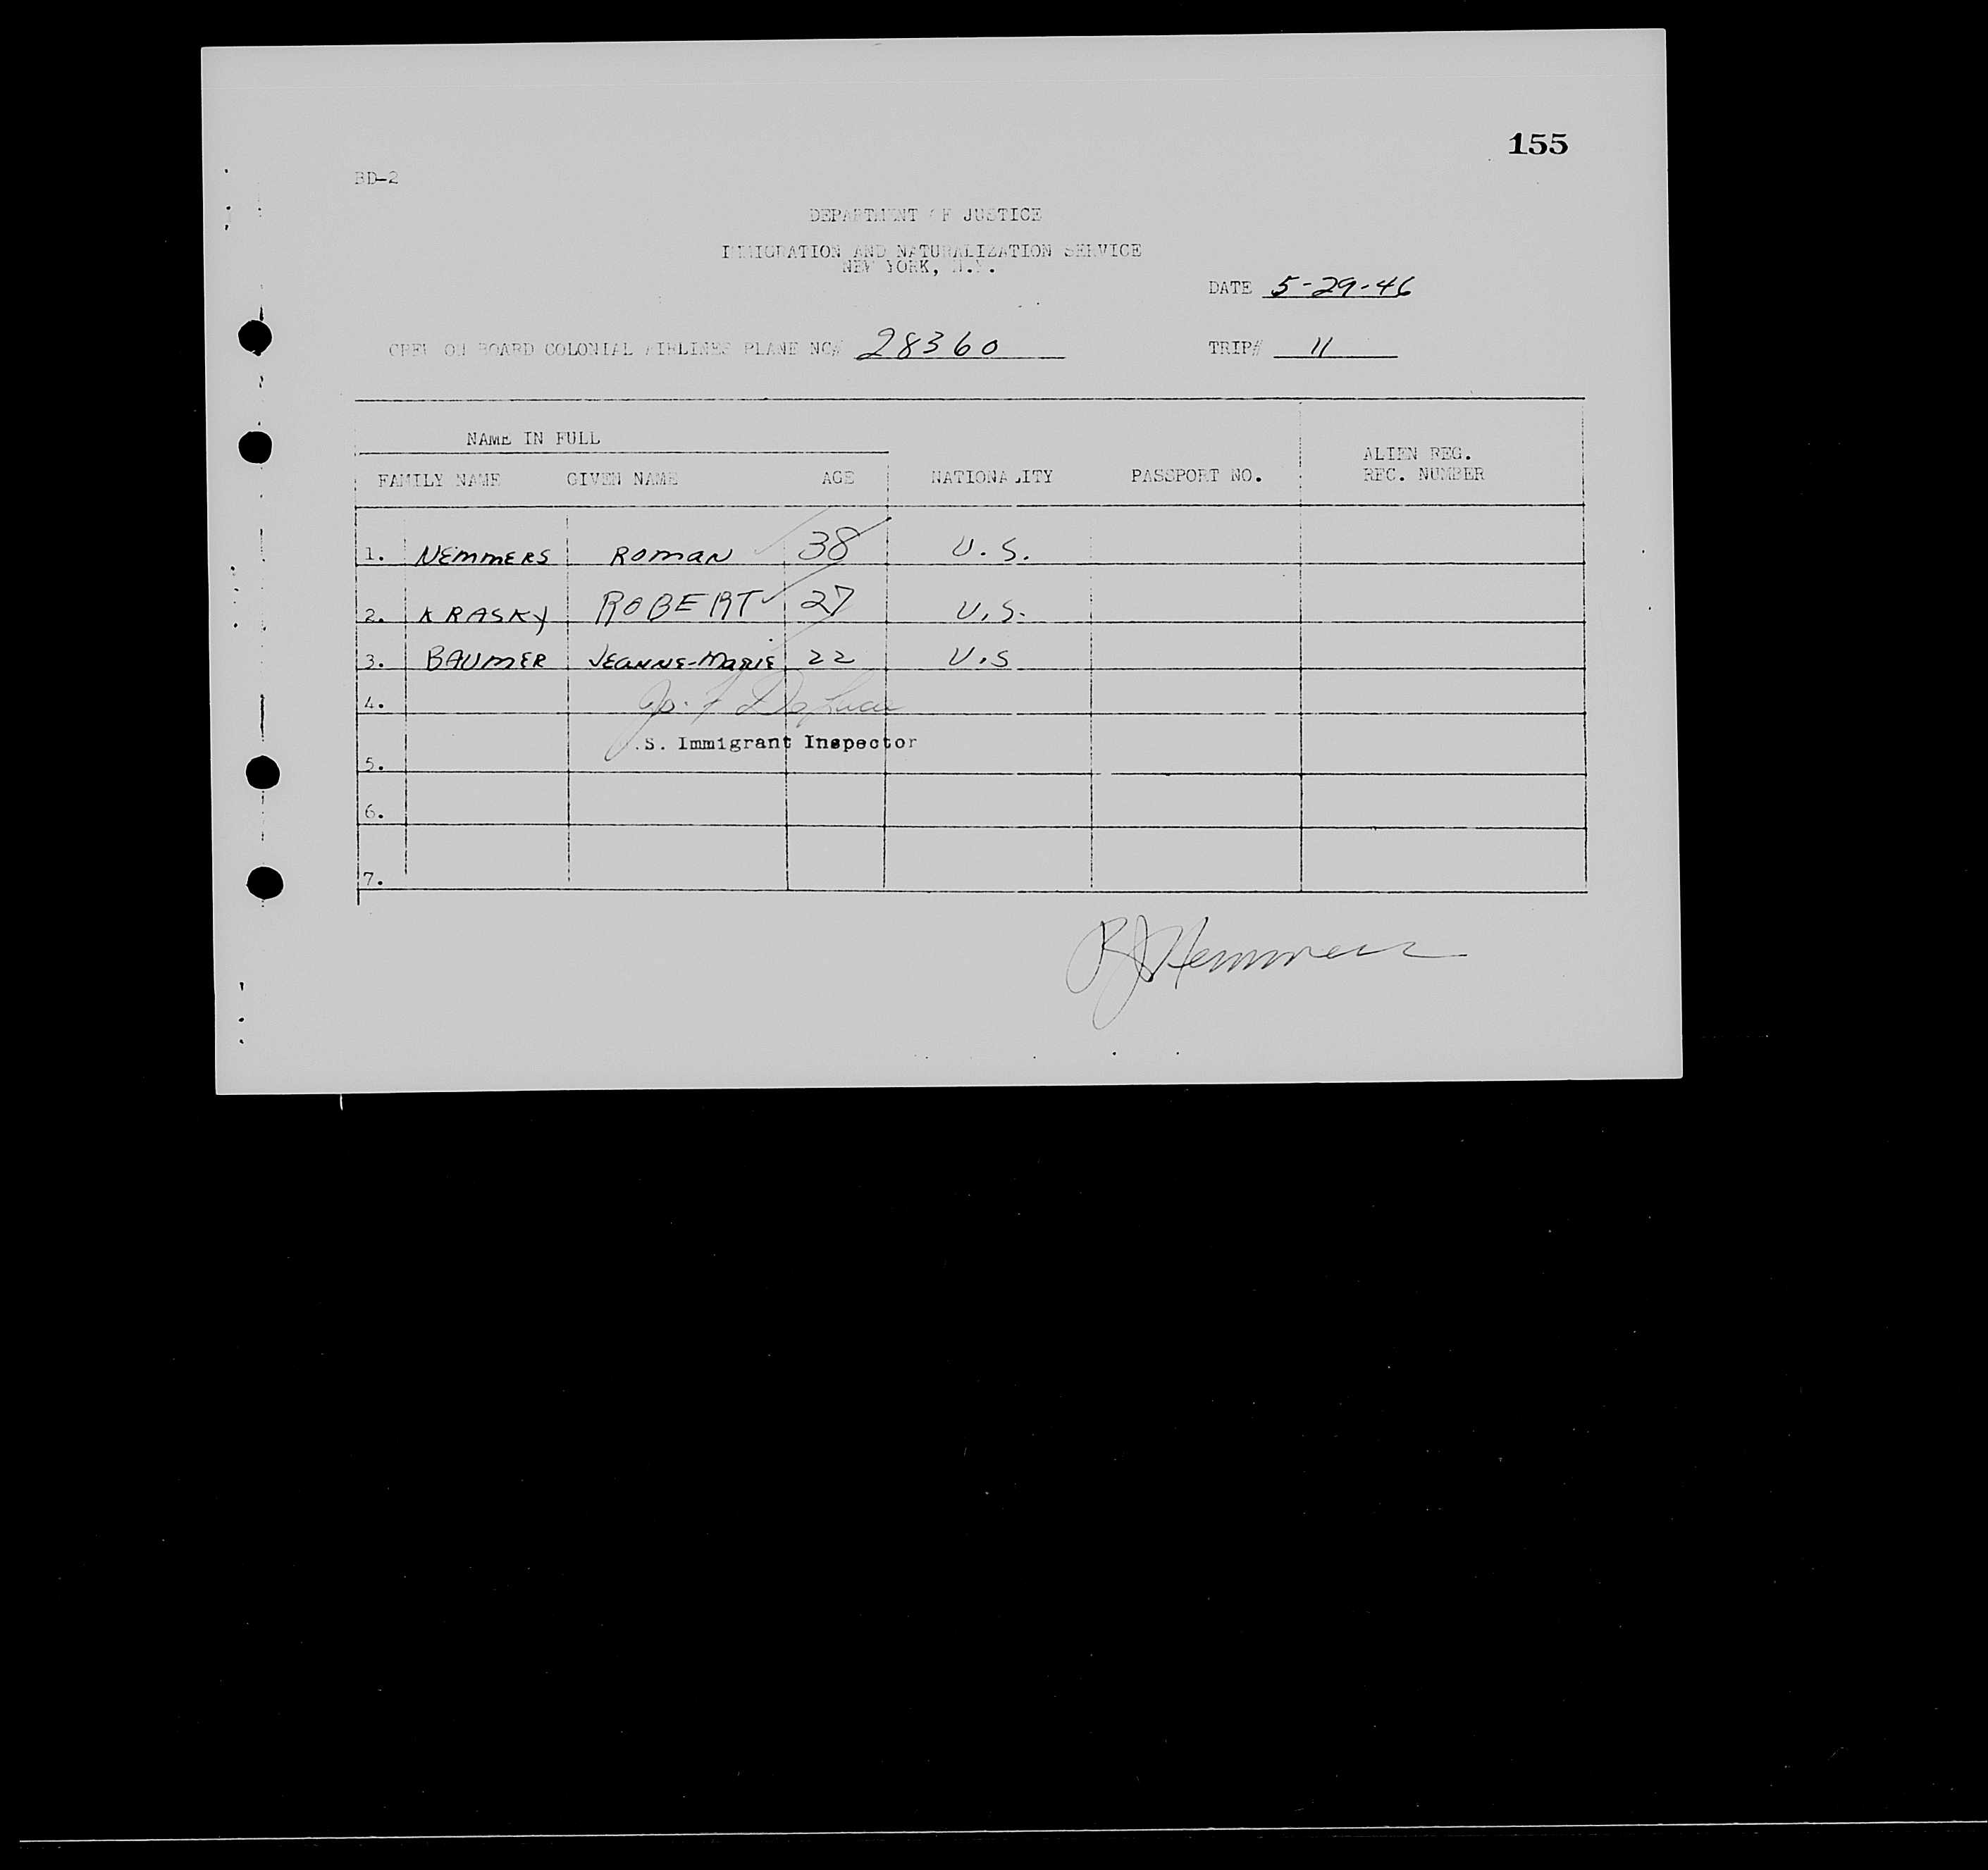 155
BD-2
DEPARTMENT OF JUSTICE
IMMIGRATION AND NATURALIZATION SERVICE
NEW YORK, N.Y.
DATE 5-29-46
CREW ON BOARD COLONIAL AIRLINES PLANE NC# 28360 TRIP# 11
NAME IN FULL
ALIEN REG.
FAMILY NAME GIVEN NAME AGE NATIONALITY PASSPORT NO. REC. NUMBER
1. NEMMERS ROMAN 38 U.S.
2. KRASKY ROBERT 27 U.S.
3. BAUMER JEANNE-MARIE 22 U.S
4.
.S. Immigrant Inspector
5.
6.
7.
RJ Nemmers